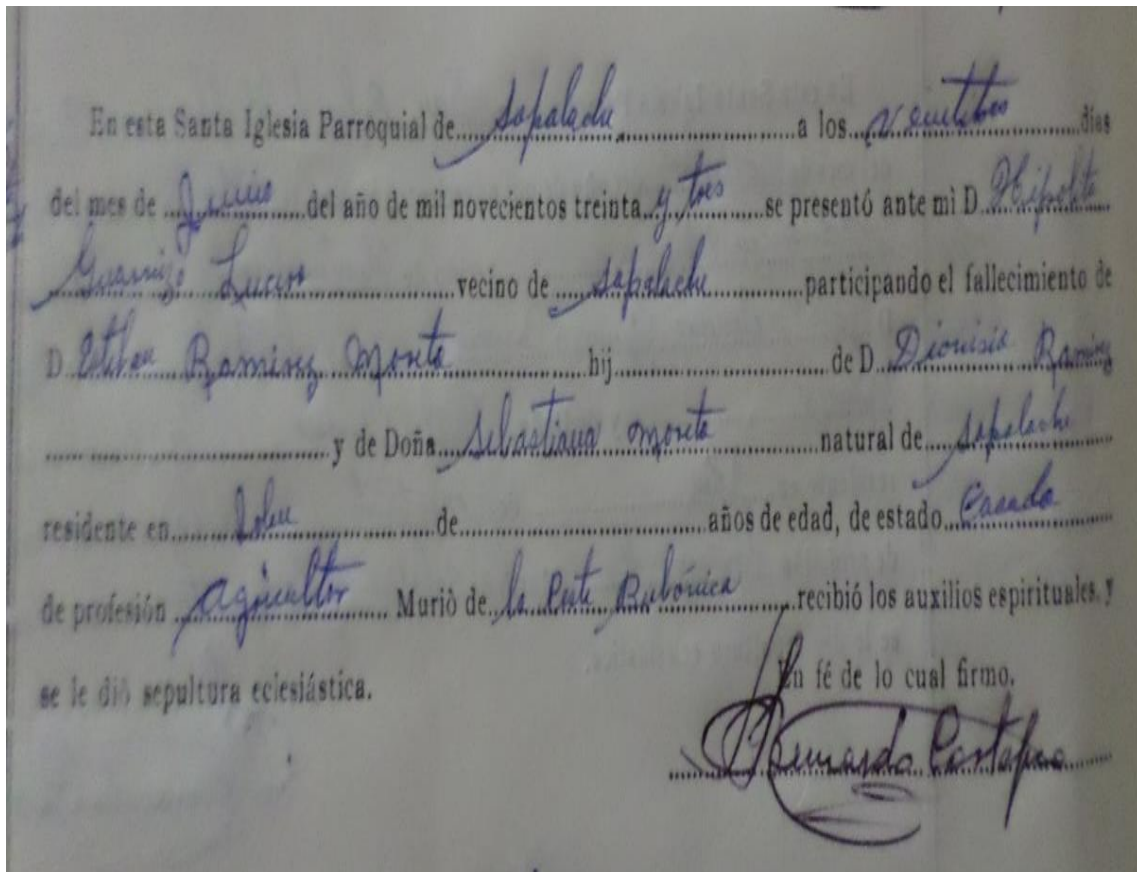 En esta Santa Iglesia Parroquial de Sapalache a los veintitres días
del mes de Junio del año de mil novecientos treinta y tres se presentó ante mì D. Hipolito
Guarnizo Lucero vecino de Sapalache participando el fallecimiento de
D. Esteban Ramirez Moreto hij de D. Dionisio Ramirez
y de Doña Sebastiana Moreto natural de Sapalache
residente en de años de edad, de estado Casado
de profesión Agricultor Muriò de la Peste Bubónica recibió los auxilios espirituales, y
se le diò sepultura eclesiástica. En fé de lo cual firmo.
Bernardo